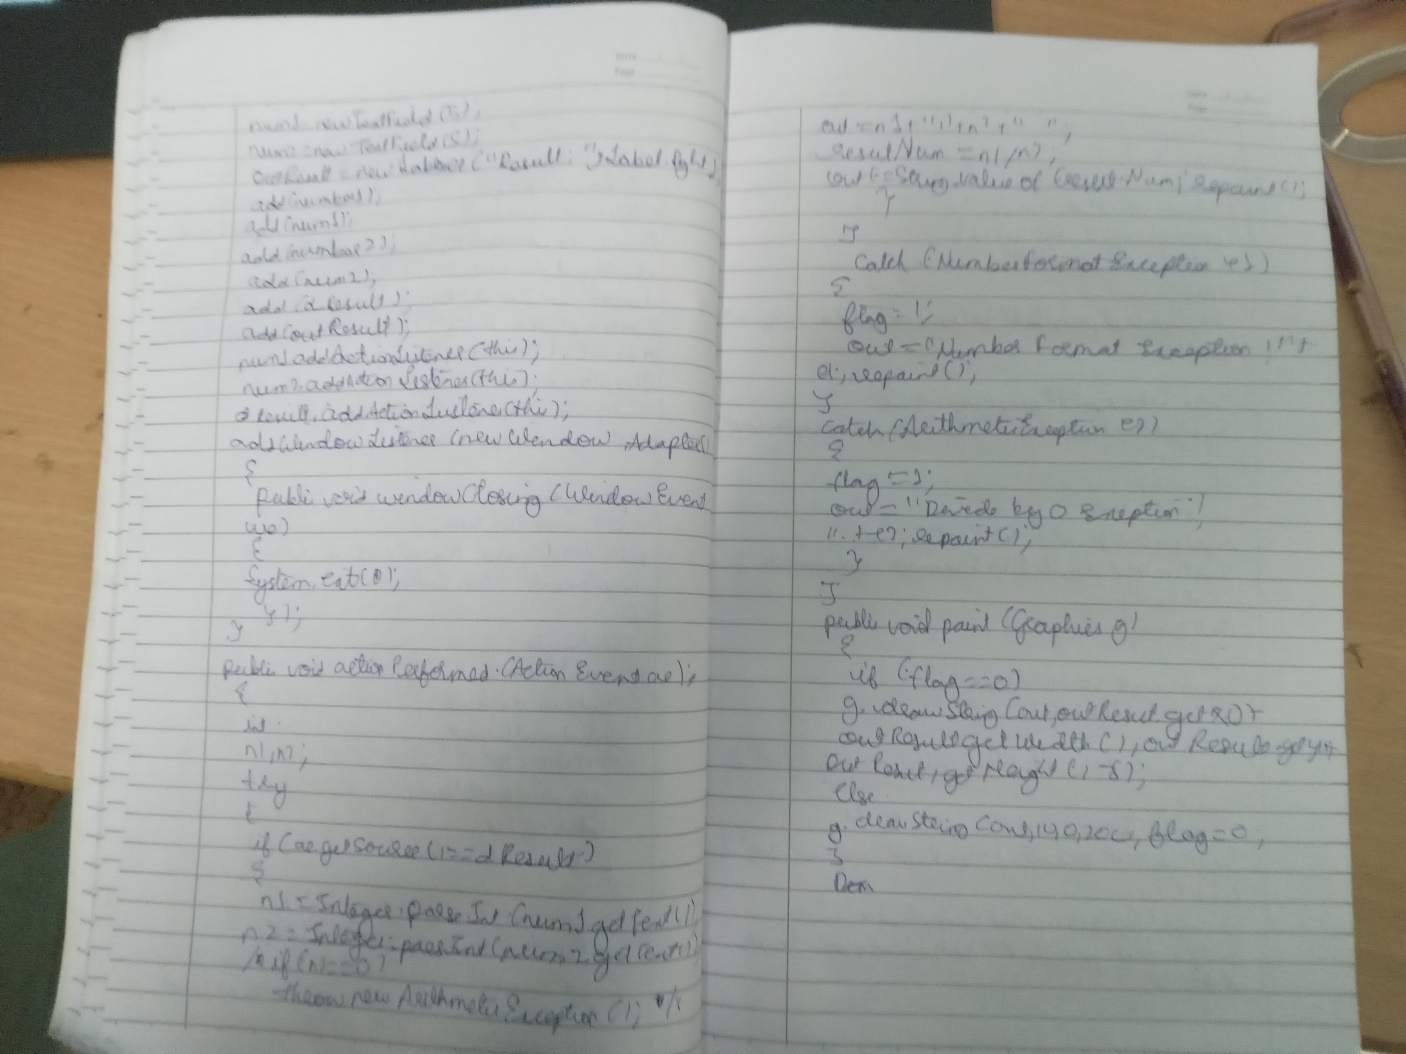 num1 = new TextField(5);
num2 = new TextField(5);
outResult = new Label ("Result: ", Label.
add(number1);
add(num1);
add(number2);
add(num2);
add(dResult);
add(outResult);
num1.addActionListner(this);
num2.addAction Listner(this);
dResult.addActionListner(this);
addWindowListner (new Window Adapter()
{
public void windowClosing (Window Event
we)
{
System.exit(0);
});
}
public void action Performed.(Action Event ae);
{
int
n1,n2;
try
{
if (ae.getSource()==dResult)
{
n1 = Integer.parseInt (num1.getText());
n2 = Integer.parseInt (num2.getText());
/* if(n2==0)
throw new ArithmeticException (); */
out = n1+" "+n2+" ";
resultNum = n1/n2;
out+=String.value of (result Num; repaint();
}
}
Catch (NumberFormat Exception e1)
{
flag = 1;
out = "Number Format Exception !"+
e1; repaint();
}
catch (ArithmeticException e2)
{
flag = 1;
out = "Divide by 0 Exception"
"+e2; repaint();
}
}
public void paint (Graphics g)
{
if (flag==0)
g.drawString (out,outResult.getX()+
outResult.getWidth(), out Result.getY+
out Result.getHeight()-8);
Else
g. drawString (out,190,200, flag=0,
}
Dem